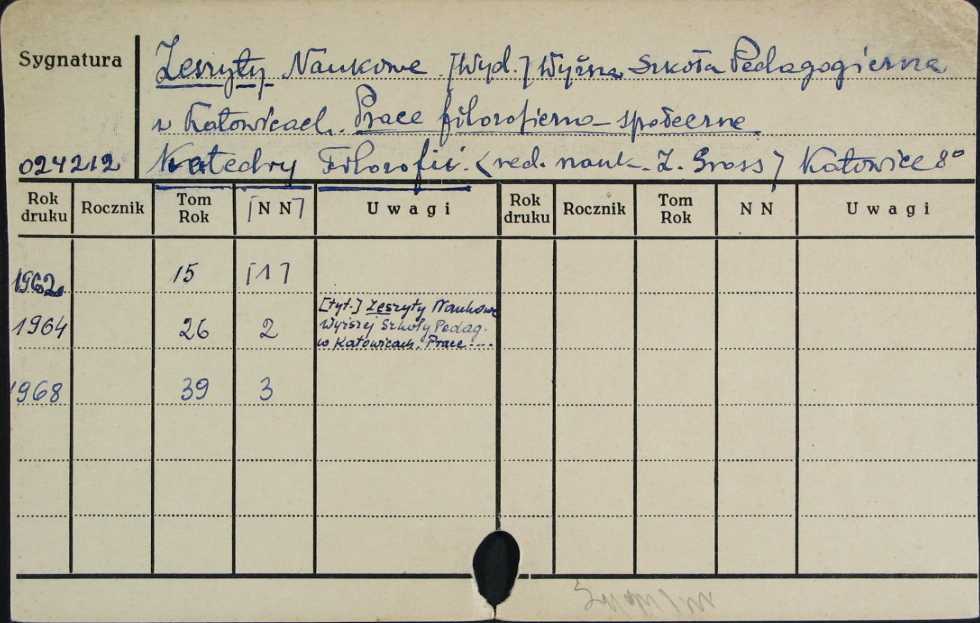 Sygnatura
Zeszyty Naukowe. [Wyd.] Wyższa Szkoła Pedagogiczna
w Katowicach. Prace filozoficzno-społeczne
024212 Katedry Filozofii. <red. nauk. Z. Gross> Katowice 8°
Rok druku Rocznik Tom Rok [NN] Uwagi Rok druku Rocznik Tom Rok NN Uwagi
1962 15 [1]
1964 26 2 [tyt.] Zeszyty Naukowe
Wyższej Szkoły Pedag.
w Katowicach. Prace ....
1968 39 3